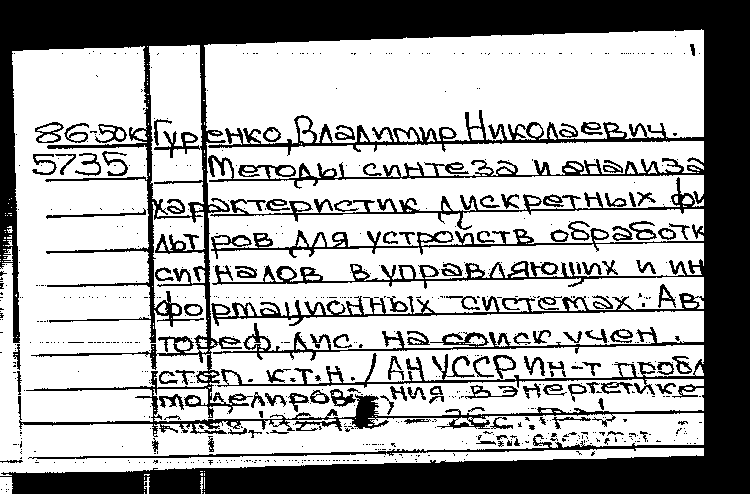 86-50к Гуренко, Владимир Николаевич.
5735 Методы синтеза и анализа
характеристик дискретных фи
льтров для устройств обработк
сигналов в управляющих и ин
формационных системах: Ав
тореф. дис. на соиск. учен.
степ. к.т.н. / АН УССР, Ин-т пробл
моделирования в энергетике
Киев, 1984 — 26с.